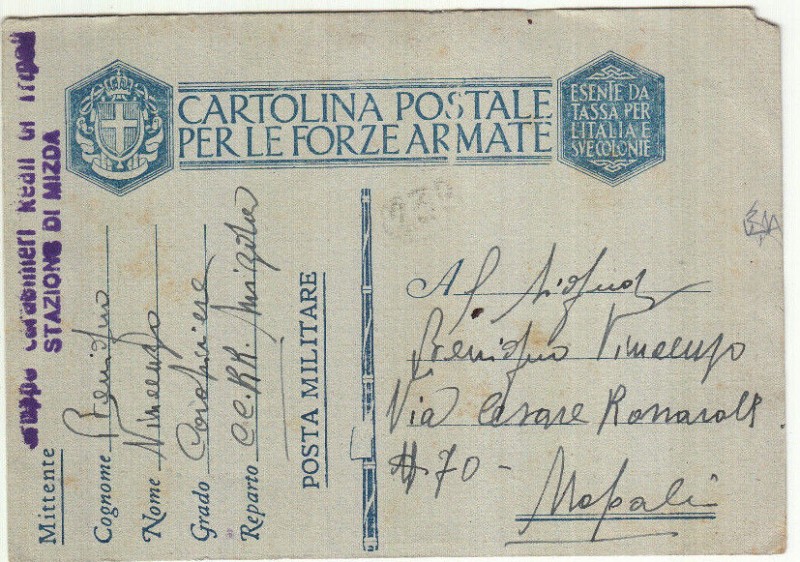 Gruppo Carabinieri Reali di Tripoli
STAZIONE DI MIZDA
CARTOLINA POSTALE
PER LE FORZE ARMATE
ESENTE DA
TASSA PER
L'ITALIA E
SVE COLONIE
Mittente
Cognome Benigno
Nome Vincenzo
Grado Carabiniere
Reparto CC. RR. Mizda
POSTA MILITARE
Al Signor
Benigno Vincenzo
Via Cesare Rossaroll
# 70 -
Napoli